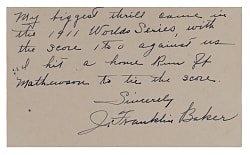 My biggest thrill came in
the 1911 Worlds Series, with
the score 1 to 0 against us
I hit a home Run off
Mathewson to tie the score.
Sincerely
J. Franklin Baker